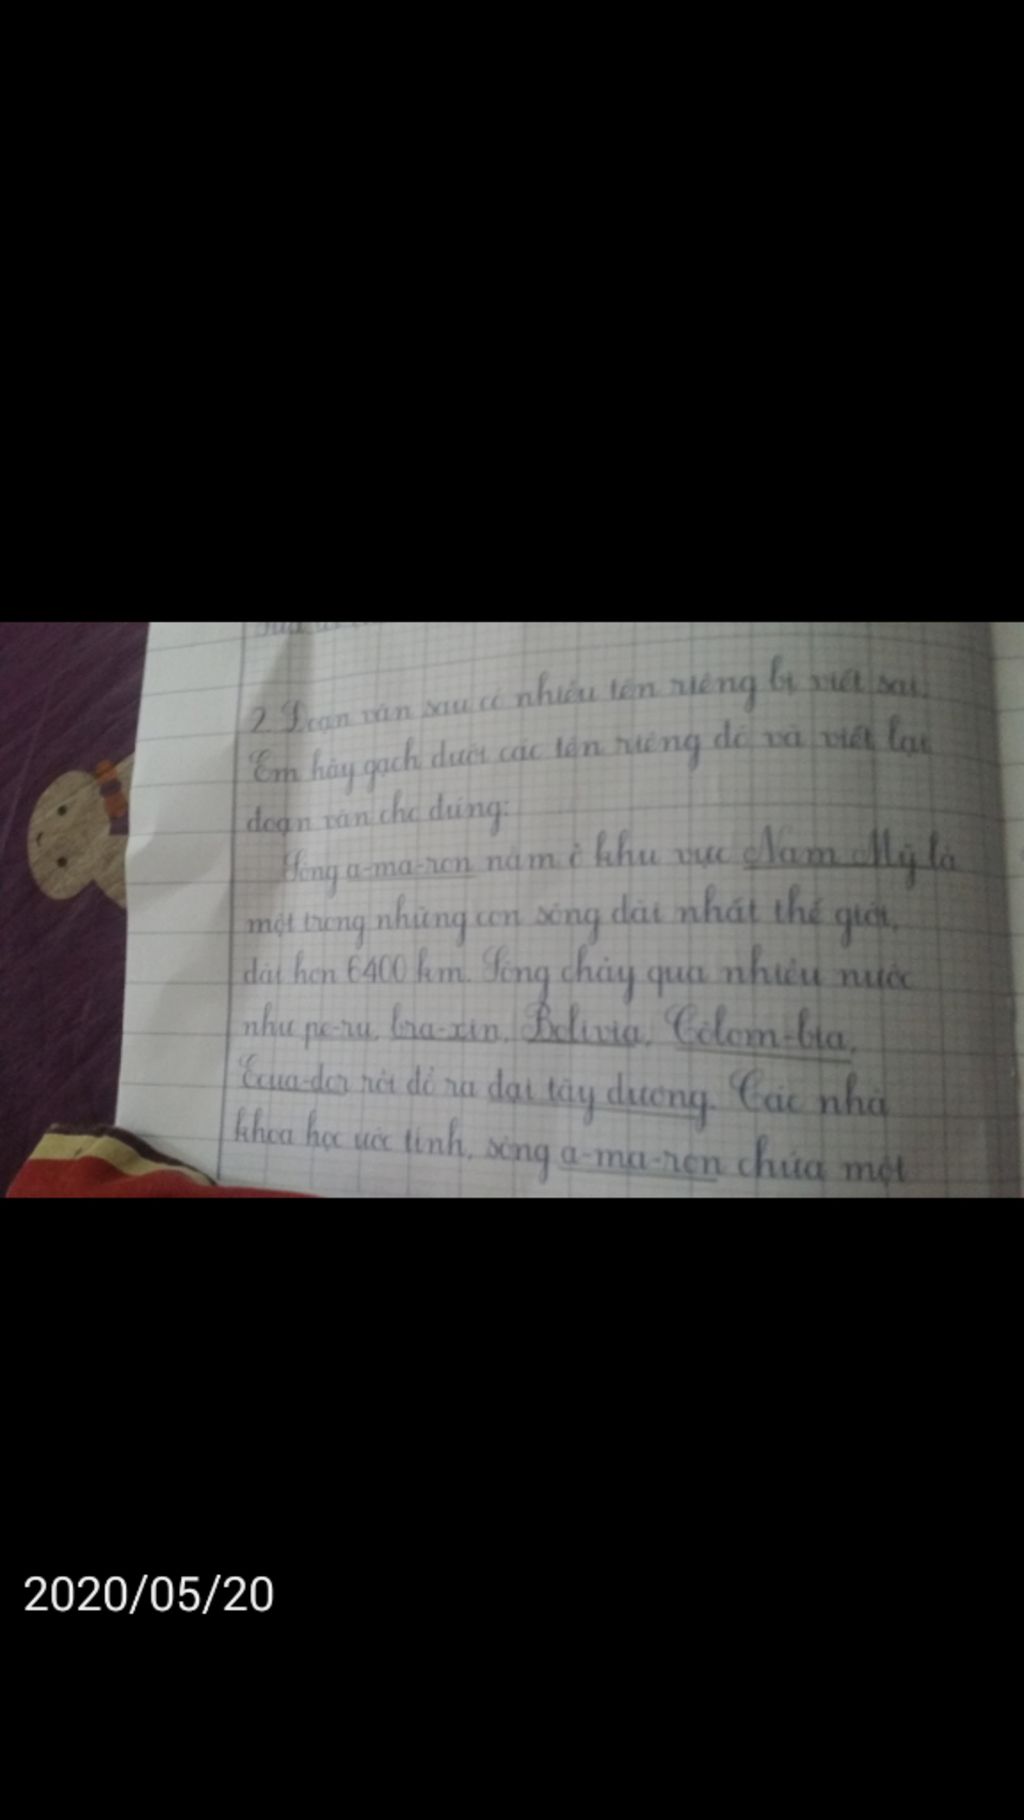 2. Đoạn văn sau có nhiều tên riêng bị viết sai.
Em hãy gạch dưới các tên riêng đó và viết lại
đoạn văn cho đúng:
Sông a-ma-ron nằm ở khu vực Nam Mỹ là
một trong những con sông dài nhất thế giới,
dài hơn 6400 km. Sông chảy qua nhiều nước
như pe-ru, bra-xin, Bolivia, Côlom-bia,
Ecua-dor rồi đổ ra đại tây dương. Các nhà
khoa học ước tính, sông a-ma-ron chứa một
2020/05/20